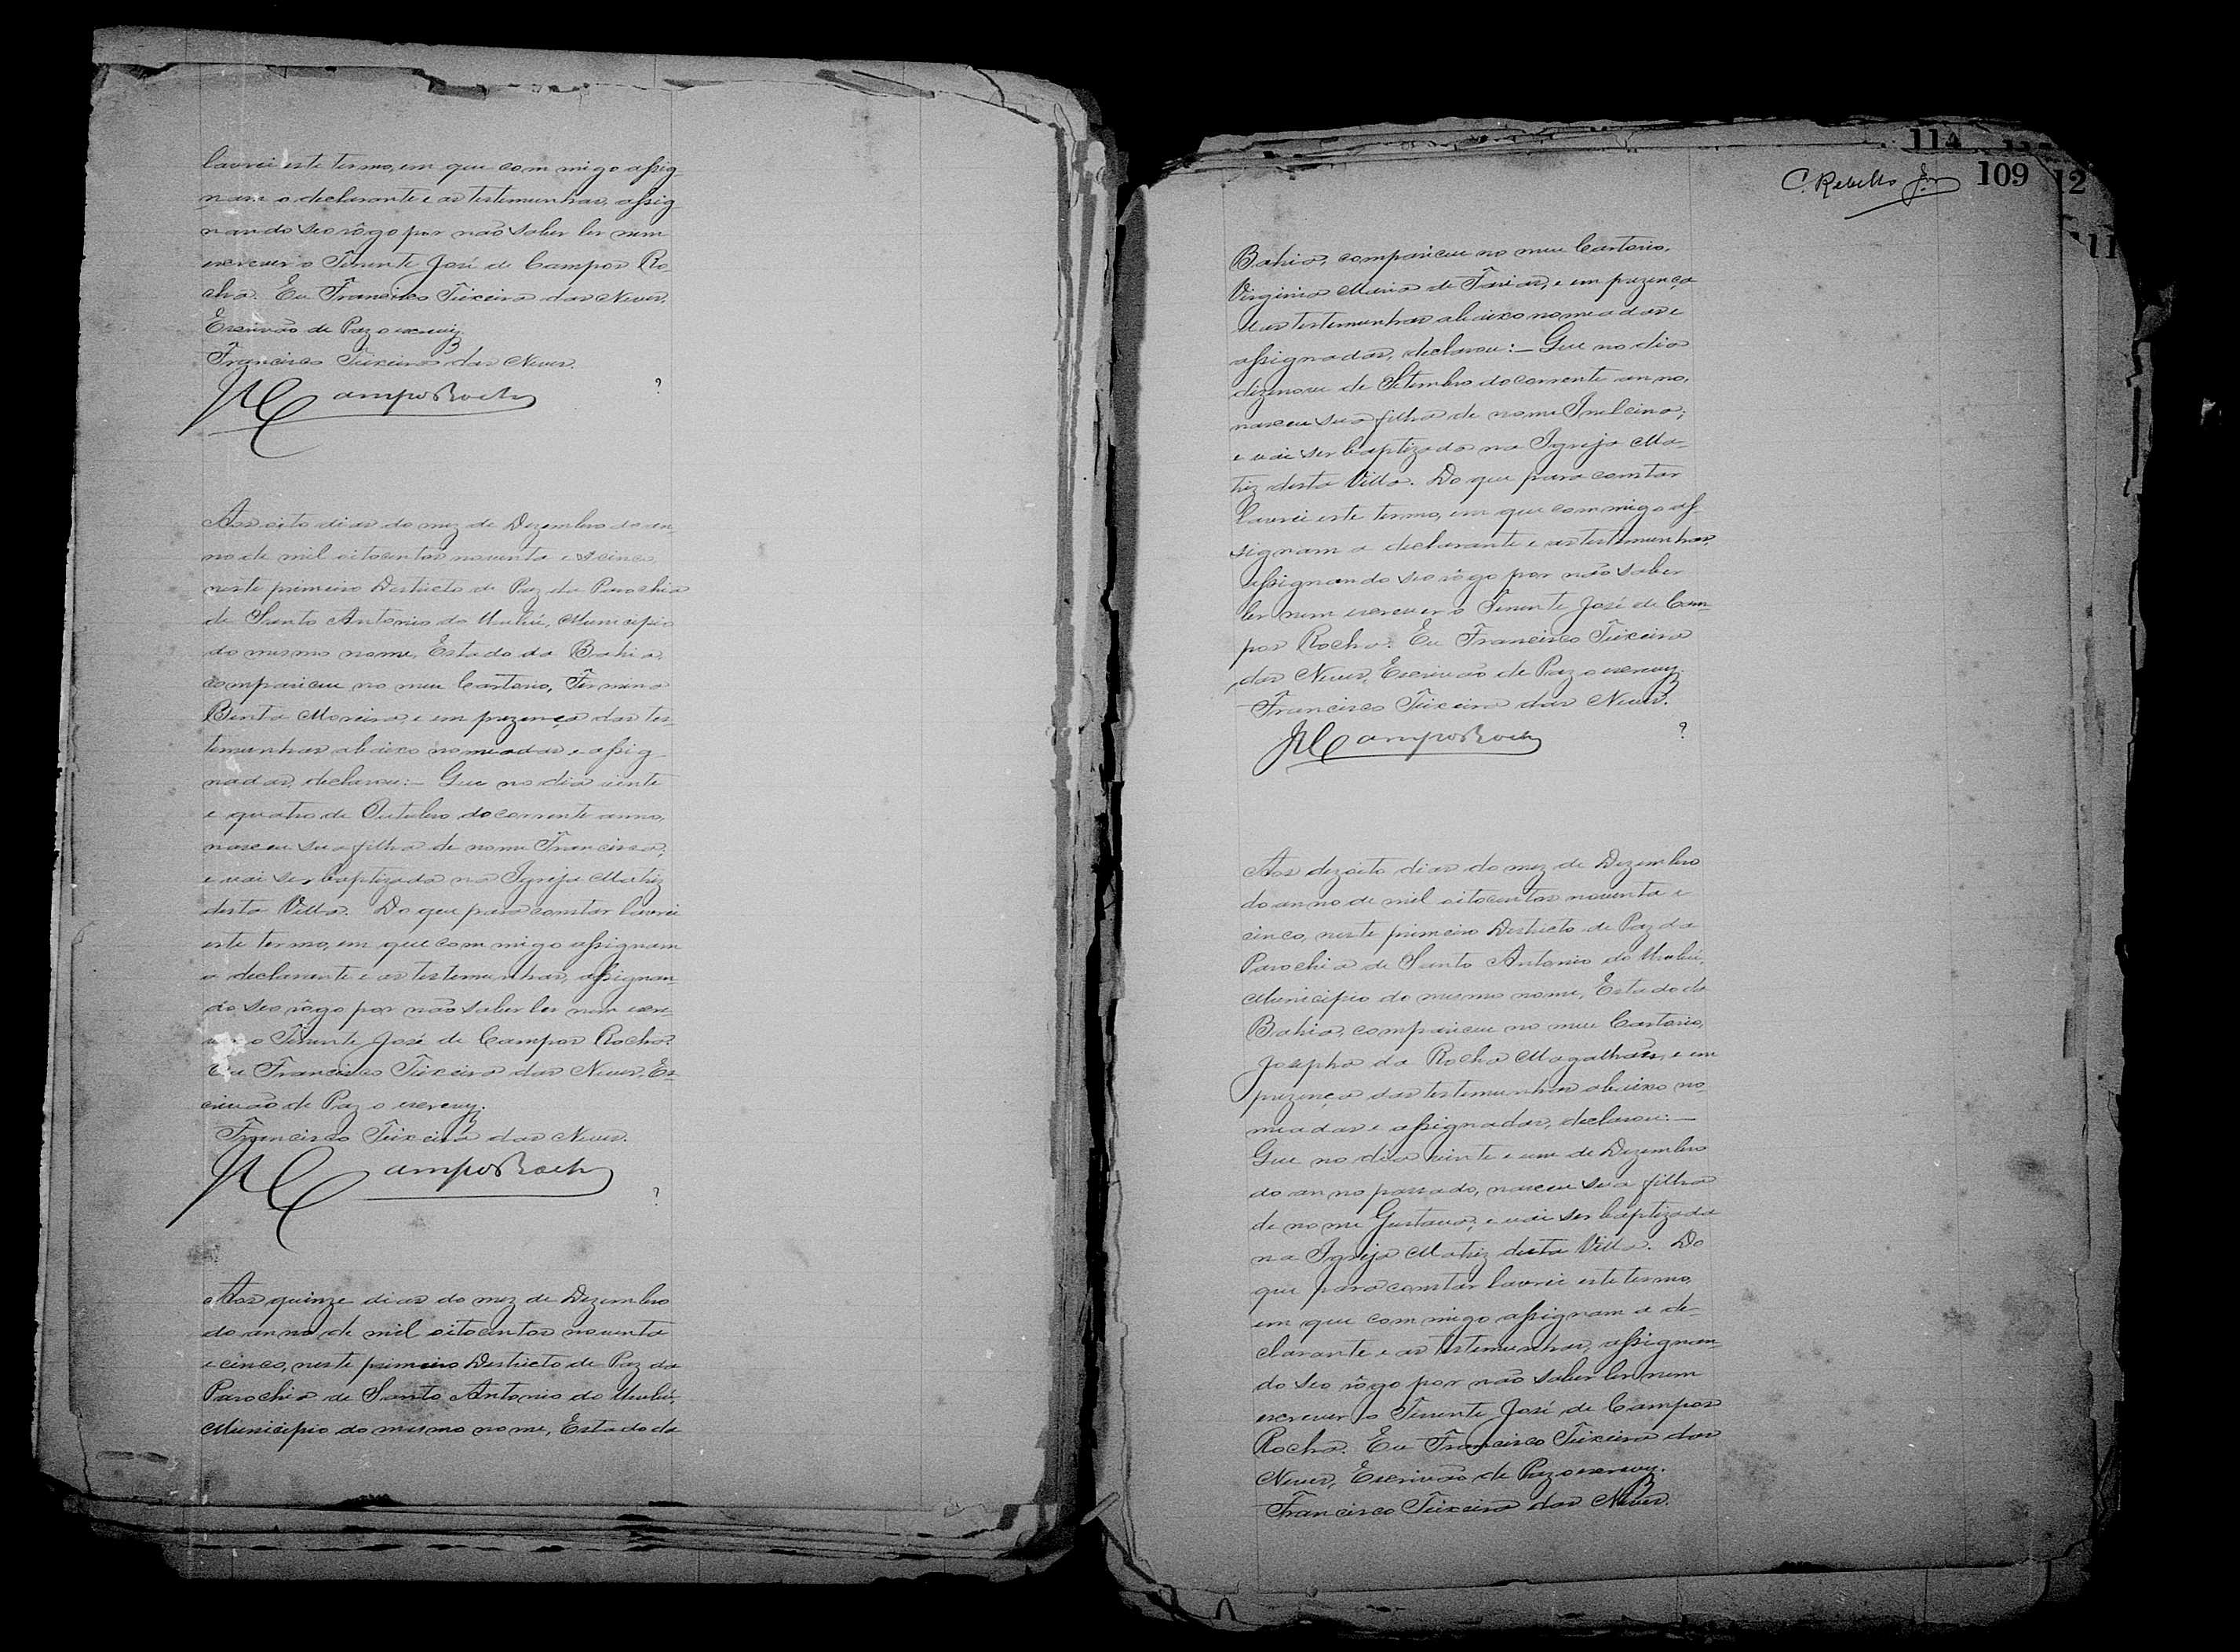 lavrei este termo, em que com migo assig
nam o declarante e as testemunhas, assig
nando seo rôgo por não saber ler nem
escrever o Tenente José de Campos Ro
cha. Eu Francisco Teixeira das Neves,
Escrivão de Paz o escrevy.
Francisco Teixeira das Neves.
JCamposRocha
?
Aos oito dias do mez de Dezembro do an
no de mil oitocentos noventa e cinco,
neste primeiro Destricto de Paz da Parochia
de Santo Antonio do Urubú, Municipio
do mesmo nome, Estado da Bahia,
compareceu no meu Cartorio, Firmina
Benta Moreira e em prezença das tes-
temunhas abaixo nomeadas e assig
nadas, declarou:— Que no dia vinte
e quatro de Outubro do corrente anno,
nasceu sua filha de nome Francisca;
e vai ser baptizada na Igreja Matriz
desta Villa. Do que para constar lavrei
este termo, em que com migo assignam
a declarante e as testemunhas, assignan-
do seo rôgo por não saber ler nem escre-
o Tenente José de Campos Rocha.
Eu Francisco Teixeira das Neves, Es-
crivão de Paz o escrevy.
Francisco Teixeira das Neves.
JCamposRocha
?
Aos quinze dias do mez de Dezembro
do anno de mil oitocentos noventa
e cinco, neste primeiro Destricto de Paz da
Parochia de Santo Antonio do Urubú,
Municipio do mesmo nome, Estado da
114
C. Rebello Jor 109
12
11
Bahia, compareceu no meu Cartorio,
Virginia Maria de Farias, e em prezença
das testemunhas abaixo nomeadas e
assignadas, declarou:— Que no dia
dizenove de Setembro do corrente anno,
nasceu sua filha de nome;
e vai ser baptizada na Igreja Ma-
triz desta Villa. Do que para constar
lavrei este termo, em que com migo as-
signam a declarante e as testemunhas,
assignando seo rôgo por não saber
ler nem escrever o Tenente José de Cam-
pos Rocha. Eu Francisco Teixeira
das Neves, Escrivão de Paz o escrevy.
Francisco Teixeira das Neves.
JCamposRocha
?
Aos dezoito dias do mez de Dezembro
do anno de mil oitocentos noventa e
cinco, neste primeiro Destricto de Paz da
Parochia de Santo Antonio do Urubú,
Municipio do mesmo nome, Estado da
Bahia, compareceu no meu Cartorio,
Josepha da Rocha Magalhães, e em
prezença das testemunhas abaixo no-
meadas e assignadas, declarou:—
Que no dia vinte e um de Dezembro
do anno passado, nasceu sua filha
de nome Gustava; e vai ser baptizada
na Igreja Matriz desta Villa. Do
que para constar lavrei este termo,
em que com migo assignam a de-
clarante e as testemunhas, assignan-
do seo rôgo por não saber ler nem
escrever o Tenente José de Campos
Rocha. Eu Francisco Teixeira das
Neves, Escrivão de Paz o escrevy.
Francisco Teixeira das Neves.